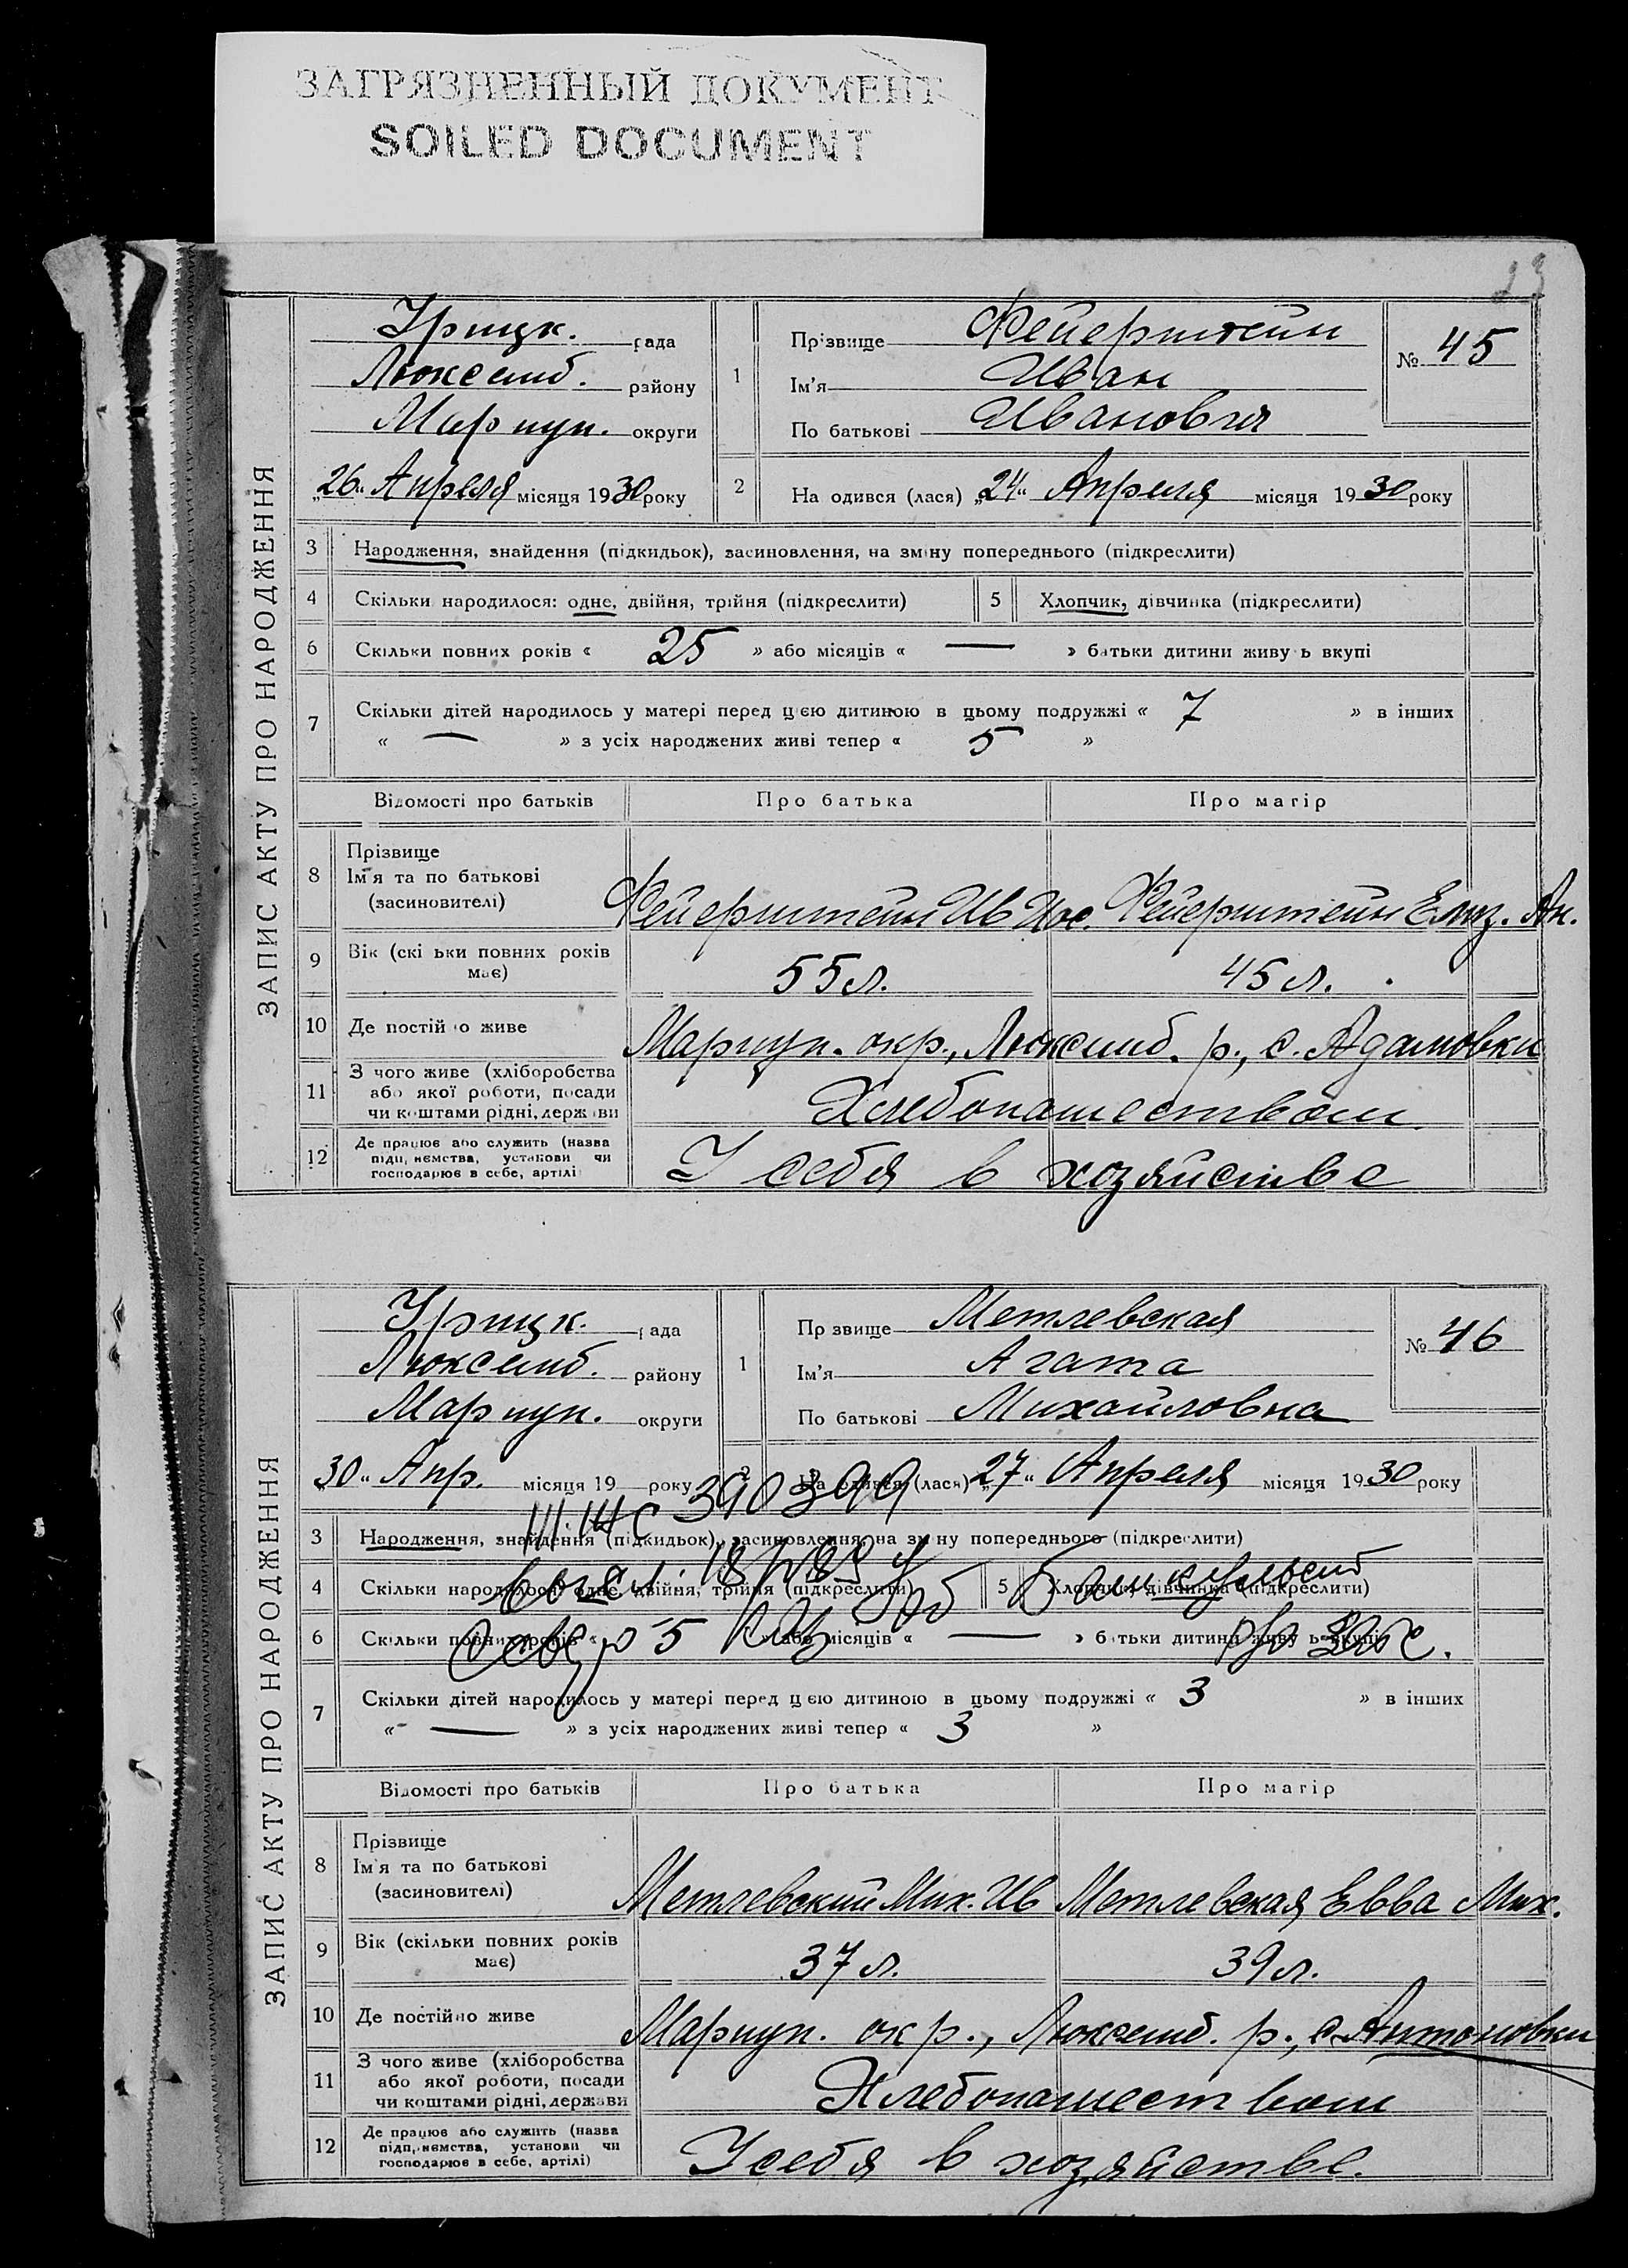 ЗАГРЯЗНЕННЫЙ ДОКУМЕНТ
SOILED DOCUMENT
23
ЗАПИС АКТУ ПРО НАРОДЖЕННЯ
Урицк. рада
Люксемб. району
Мариуп. округи
„26“ Апреля місяця 1930 року
1
Прізвище Фейерштейн
Ім'я Иван
По батькові Иванович
№ 45
2 На одився (лася) „24“ Апреля місяця 1930 року
3 Народження, знайдення (підкидьок), засиновлення, на зміну попереднього (підкреслити)
4 Скільки народилося: одне, двійня, трійня (підкреслити) 5 Хлопчик, дівчинка (підкреслити)
6 Скільки повних років « 25 » або місяців « — » батьки дитини живу ь вкупі
7 Скільки дітей народилось у матері перед цією дитиною в цьому подружжі « 7 » в інших
« — » з усіх народжених живі тепер « 5 »
Відомості про батьків Про батька Про матір
8 Прізвище
Ім'я та по батькові
(засиновителі)
Фейерштейн Ив Ив. Фейерштейн Елиз. Ан.
9 Вік (скі ьки повних років
має)
55 л. 45 л.
10 Де постій о живе Мариуп. окр., Люксемб. р., с. Адамовки
11 З чого живе (хліборобства
або якої роботи, посади
чи коштами рідні, держави
Хлебопашеством
12 Де працює або служить (назва
підп, иємства, установи чи
господарює в себе, артілі
У себя в хозяйстве
ЗАПИС АКТУ ПРО НАРОДЖЕННЯ
Урицк. рада
Люксемб. району
Мариуп. округи
„30“ Апр. місяця 19 року
1
Пр звище Метлевская
Ім'я Агата
По батькові Михайловна
№ 46
2 На одився (лася) „27“ Апреля місяця 1930 року
390399
3 Народження, знайдення (підкидьок), засиновлення, на зміну попереднього (підкреслити)
4 Скільки народилося: одне, двійня, трійня (підкреслити) 5 Хлопчик, дівчинка (підкреслити)
6 Скільки повних років « 5 » або місяців « — » б тьки дитини живу ь вкупі
7 Скільки дітей народилось у матері перед цією дитиною в цьому подружжі « 3 » в інших
« — » з усіх народжених живі тепер « 3 »
Відомості про батьків Про батька Про матір
8 Прізвище
Ім'я та по батькові
(засиновителі)
Метлевский Мих. Ив Метлевская Евва Мих.
9 Вік (скільки повних років
має)
37 л. 39 л.
10 Де постійно живе Мариуп. окр., Люксемб. р., с. Антоновки
11 З чого живе (хліборобства
або якої роботи, посади
чи коштами рідні, держави
Хлебопашеством
12 Де працює або служить (назва
підп, иємства, установи чи
господарює в себе, артілі)
У себя в хозяйстве.